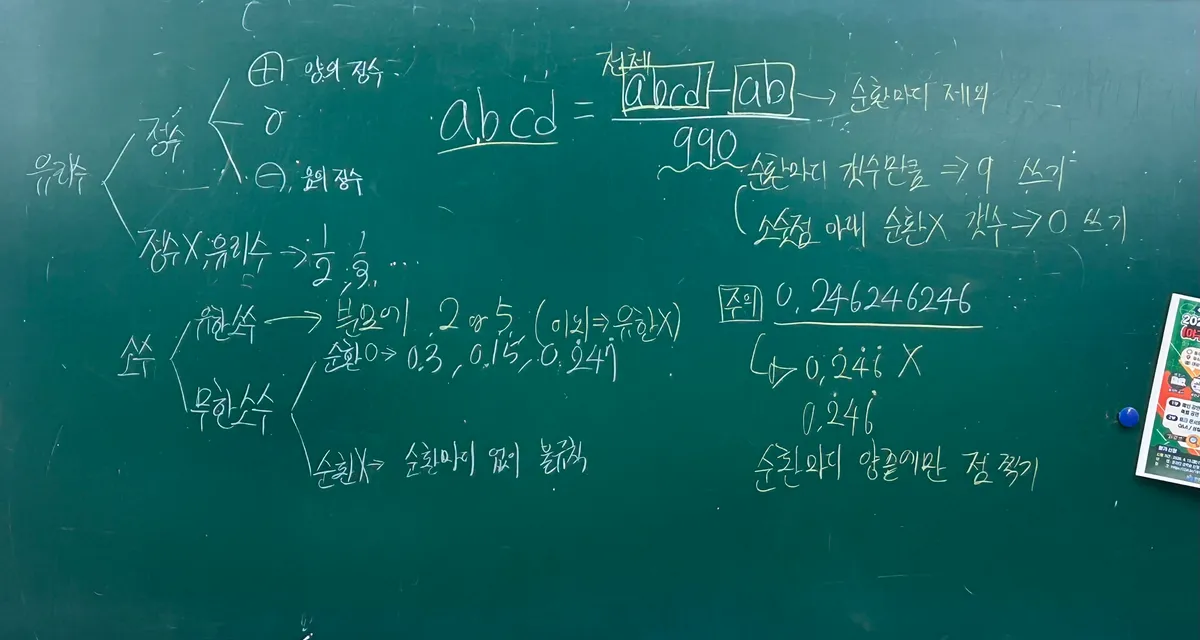 유리수
정수
⊕ 양의 정수
0
⊖ 음의 정수
정수X 유리수 → 1/2, 1/3, ...
소수
유한소수 → 분모에 2 or 5 (이외⇒유한X)
무한소수
순환O → 0.3, 0.15, 0.2̇47̇
순환X → 순환마디 없이 불규칙
a.bcd = (abcd - ab)/990
전체
→ 순환마디 제외
순환마디 갯수만큼 ⇒ 9 쓰기
소숫점 아래 순환X 갯수 ⇒ 0 쓰기
주의 0.246246246
↳ 0.2̇4̇6̇ X
0.2̇46̇
순환마디 양끝에만 점 찍기